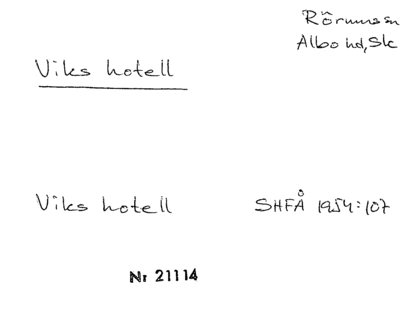 Rörumssn
Albo hd, Sk
Viks hotell
Viks hotell SHFÅ 1954:107
Nr 21114